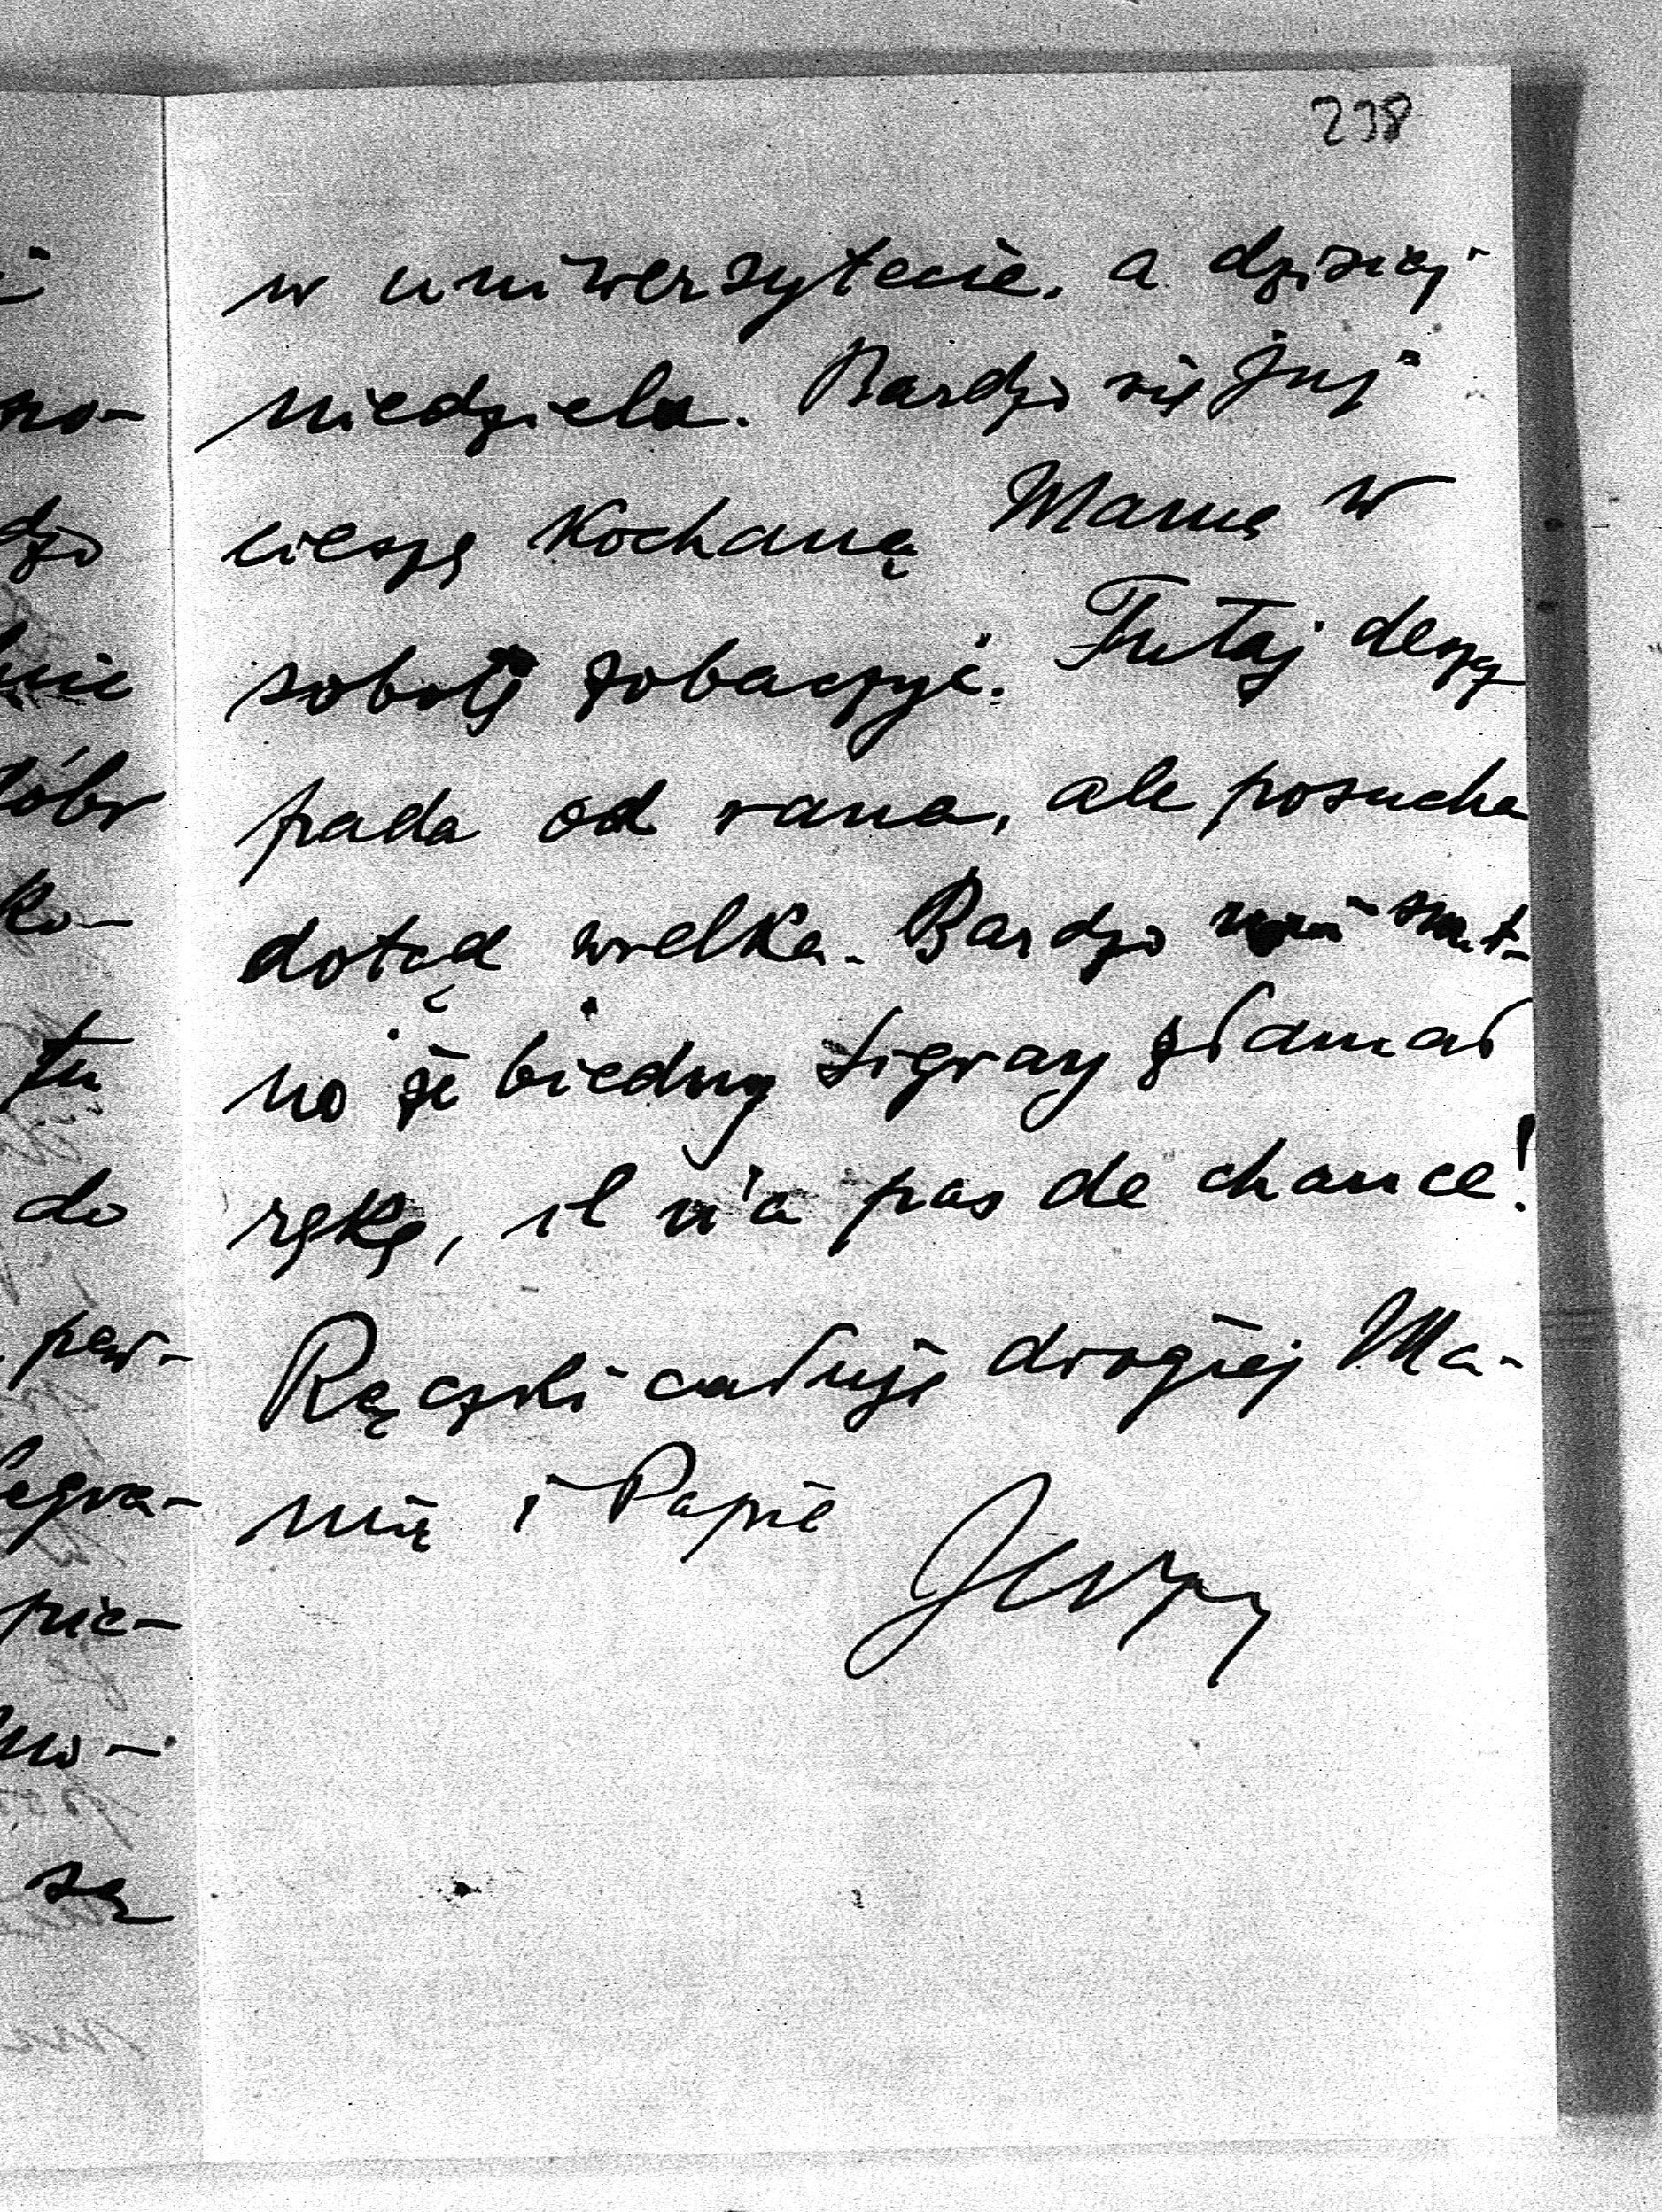 238
w uniwersytecie, a dzisiaj
niedziela. Bardzo się już
cieszę Kochaną Mamę w
sobotę zobaczyć. Tutaj deszcz
pada od rana, ale posucha
dotąd wielka. Bardzo mi smut-
no że biedny Sigray złamał
rękę, il n'a pas de chance!
Rączki całuję drogiej Ma-
mię i Papie
Jerzy
no-
dzo
ko-
tu
do
pew-
pie-
są